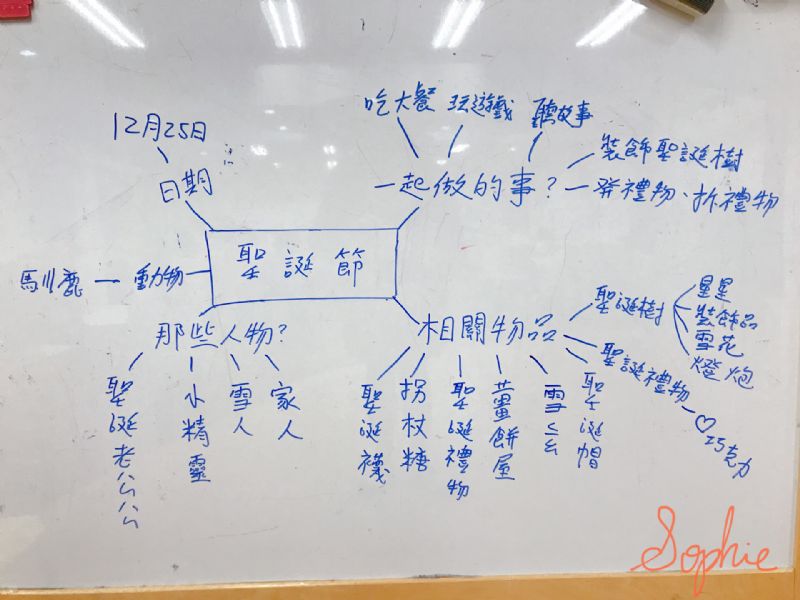 吃大餐 玩遊戲 聽故事
12月25日
裝飾聖誕樹
日期
一起做的事?
發禮物、拆禮物
聖誕節
馴鹿
動物
那些人物?
相關物品
聖誕樹
星星
裝飾品
雪花
燈炮
聖誕禮物
♡巧克力
聖誕老公公
小精靈
雪人
家人
聖誕襪
拐杖糖
聖誕禮物
薑餅屋
聖誕帽
Sophie